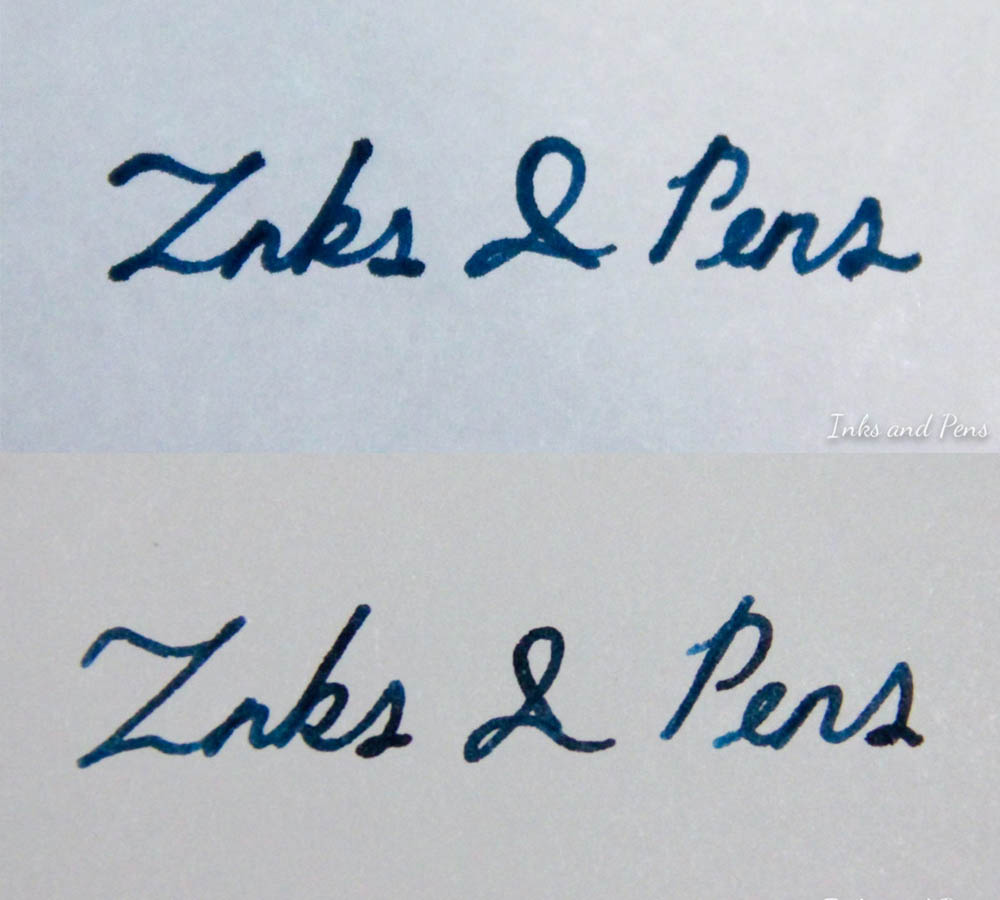 Inks & Pens
Inks and Pens
Inks & Pens